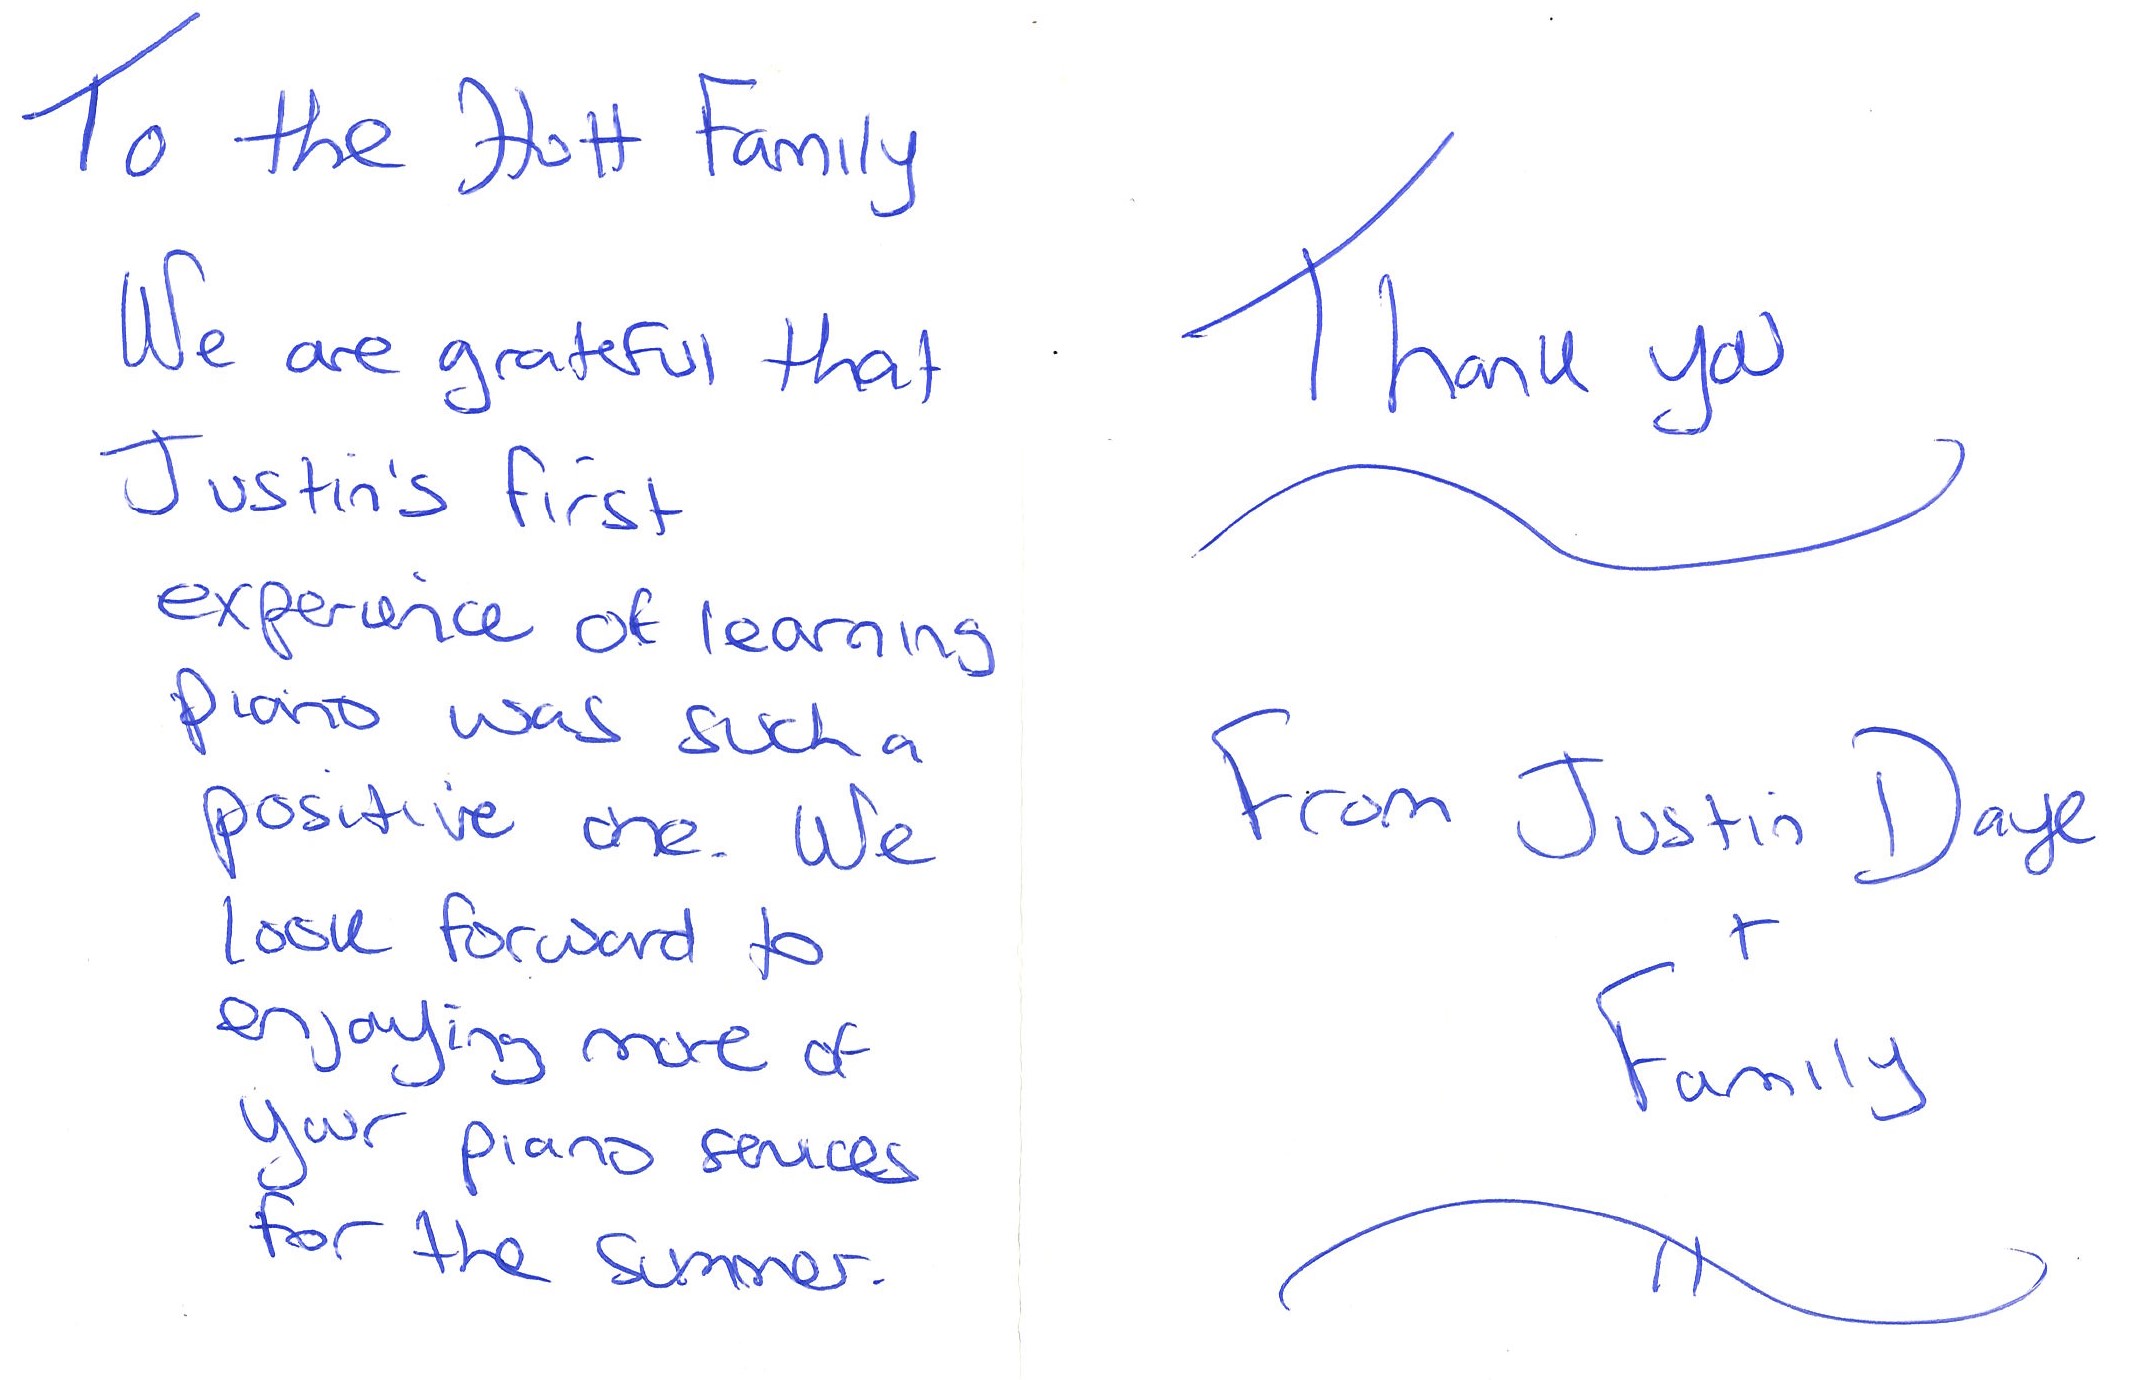 To the Hott Family
We are grateful that
Justin's first
experience of learning
piano was such a
positive one. We
look forward to
enjoying more of
your piano services
for the summer.
Thank you
From Justin Daye
+
Family